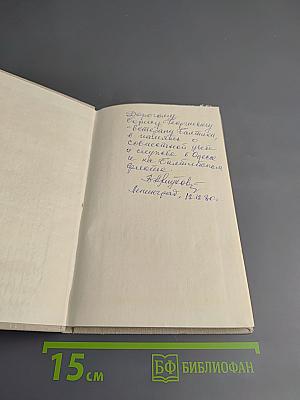 Дорогому
Борису Георгиевичу
ветерану Балтики,
в память о
совместной учебе
и службе в Одессе
и на Балтийском
флоте.
Ленинград, 12.12.80.
15 см
БФ БИБЛИОФАН